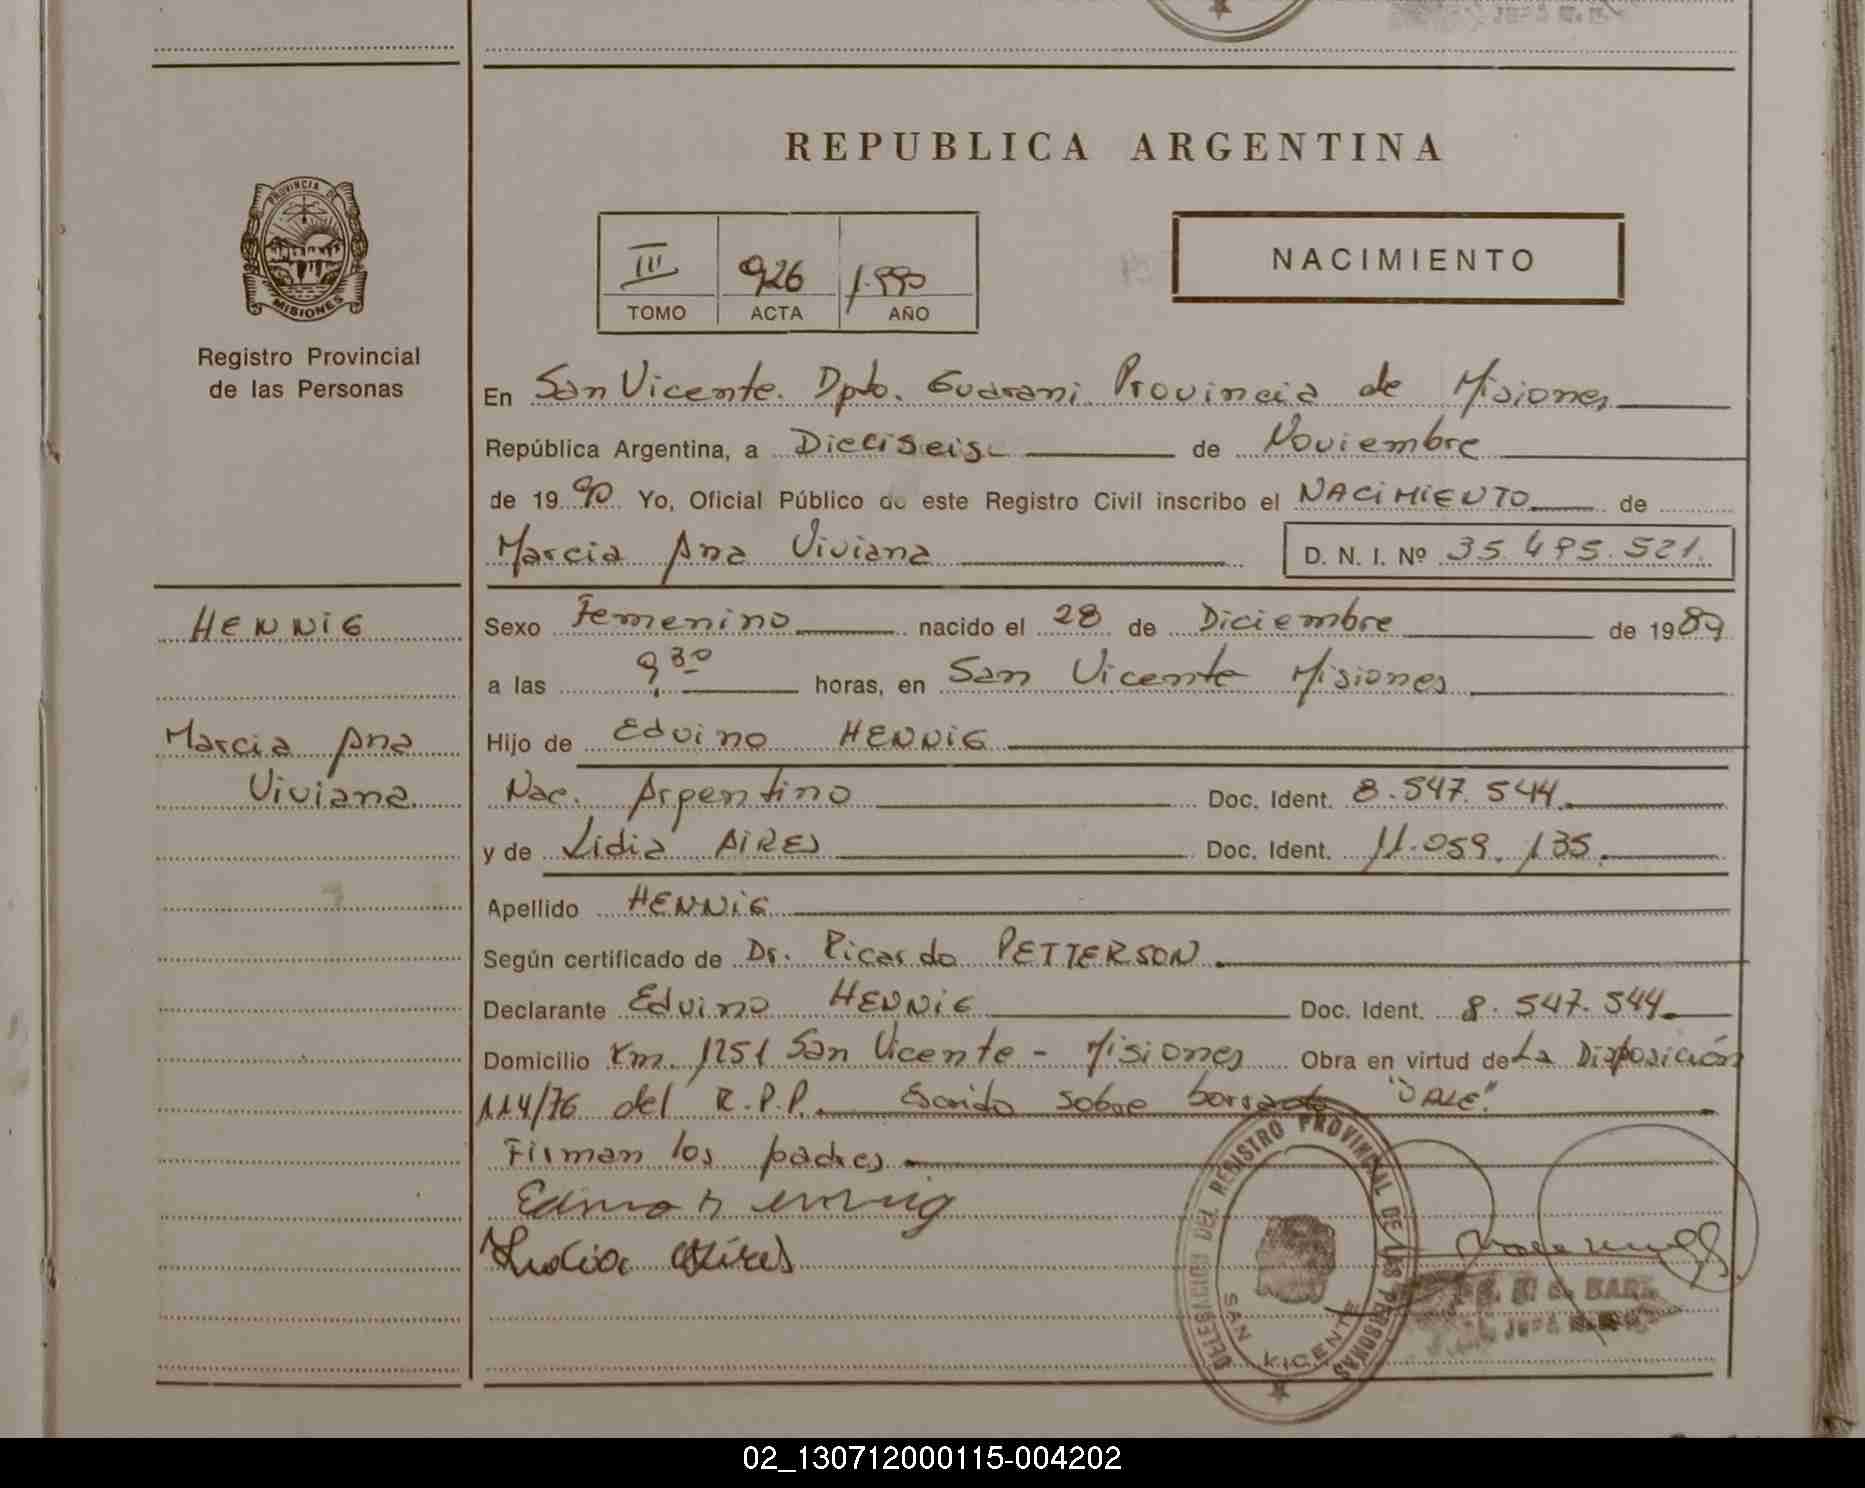 REPUBLICA ARGENTINA
PROVINCIA DE
MISIONES
Registro Provincial
de las Personas
III 926 1.990
TOMO ACTA AÑO
NACIMIENTO
En San Vicente. Dpto. Guarani Provincia de Misiones
República Argentina, a Dieciseis de Noviembre
de 19 90 Yo, Oficial Público de este Registro Civil inscribo el NACIMIENTO de
Marcia Ana Viviana D. N. I. Nº 35.495.521.
HENNIG
Sexo Femenino nacido el 28 de Diciembre de 1989
a las 9,30 horas, en San Vicente Misiones
Marcia Ana
Viviana
Hijo de Edvino HENNIG
Nac. Argentino Doc. Ident. 8.547.544.
y de Lidia AIRES Doc. Ident. 11.059.135.
Apellido HENNIG
Según certificado de Dr. Ricardo PETTERSON.
Declarante Edvino HENNIG Doc. Ident. 8.547.544.
Domicilio Km. 1251 San Vicente - Misiones Obra en virtud de La Disposición
114/76 del R.P.P. Escrido sobre borrado "VALE".
Firman los padres
Lidia Aires
DELEGACION DEL REGISTRO PROVINCIAL DE LAS PERSONAS
SAN VICENTE
02_130712000115-004202